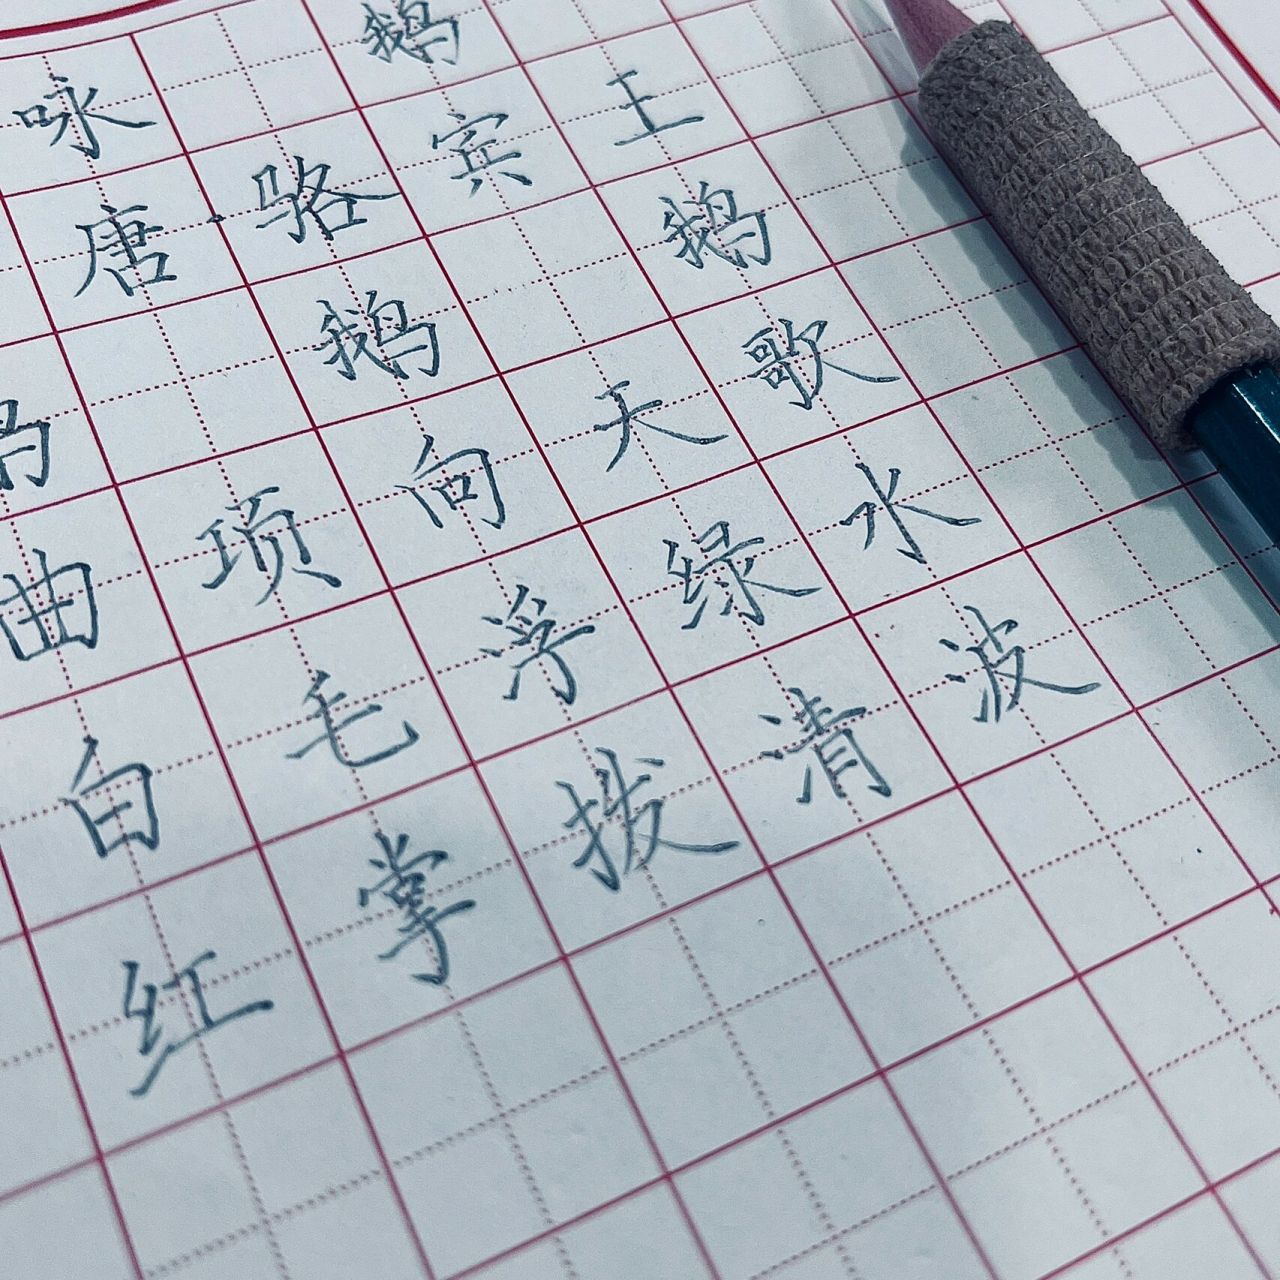 咏 鹅
唐·骆宾王
鹅 鹅 鹅
曲项向天歌
白毛浮绿水
红掌拨清波